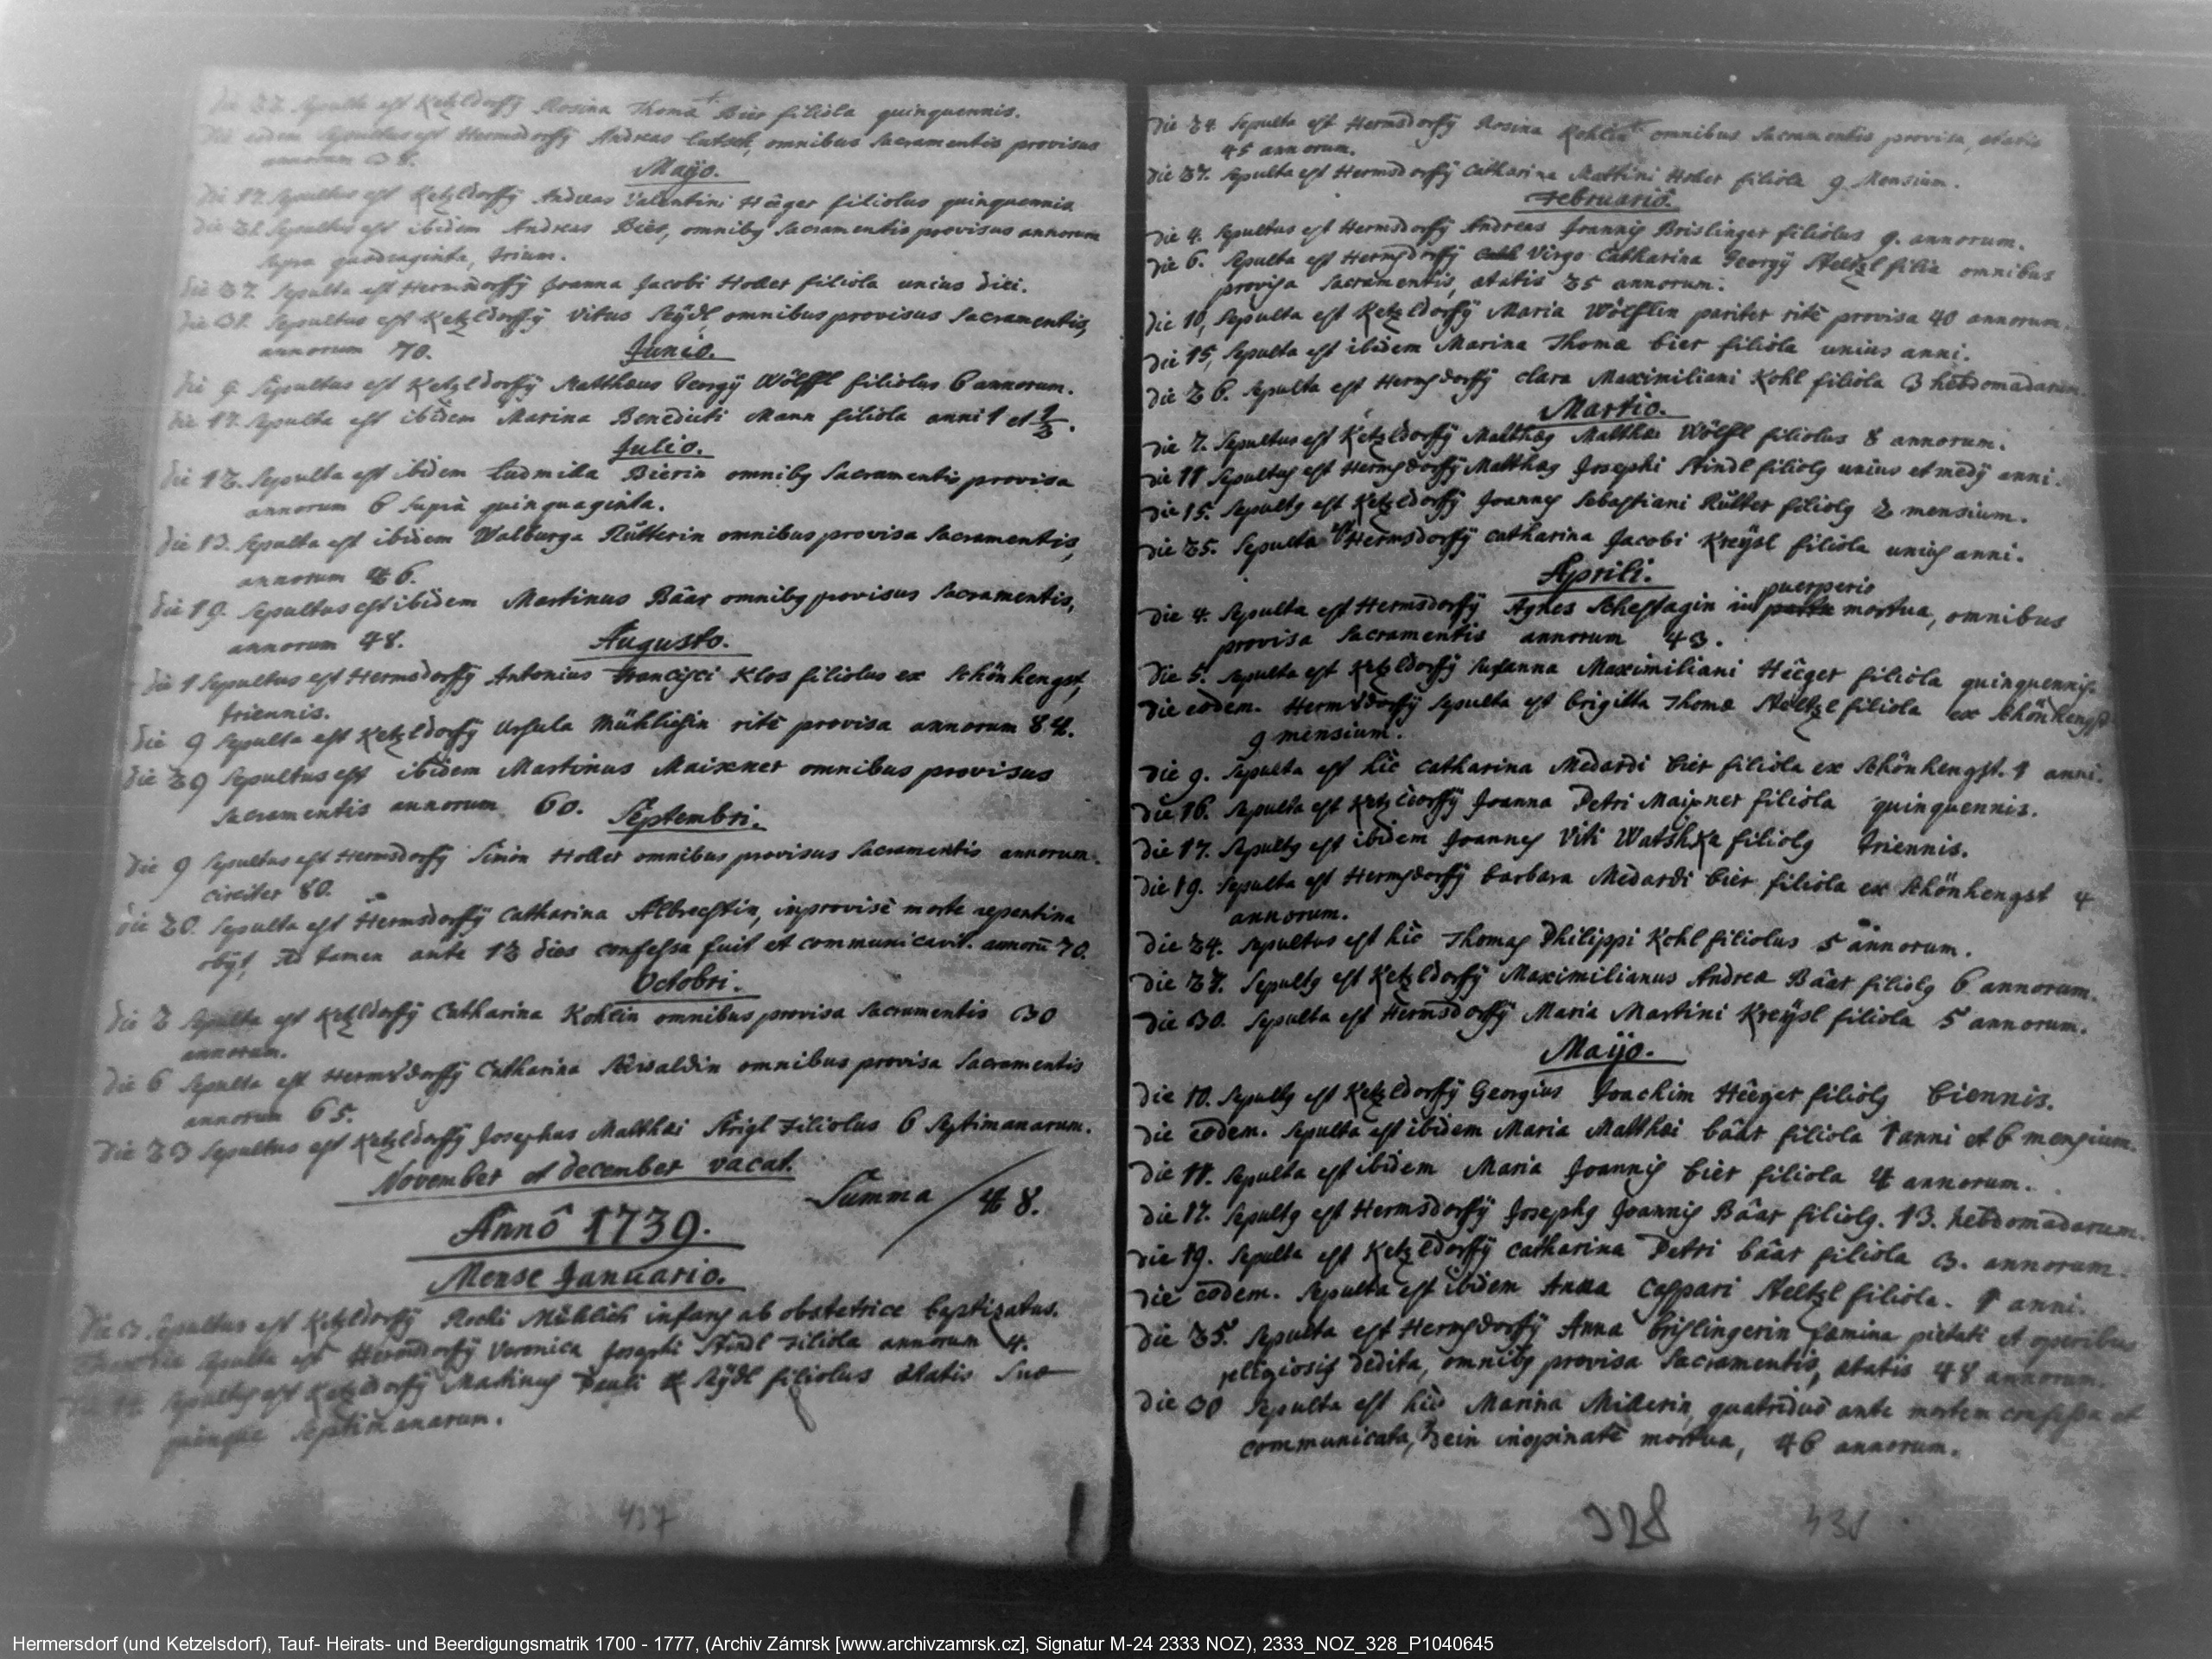 die 27. Sepulta est Ketzldorffÿ Rosina Thoma Bier filiola quinquennis.
die eodem Sepultus est Hermsdorffÿ Andreas Lutsch, omnibus Sacramentis provisus
annorum 38.
Mayo.
die 17. Sepultus est Ketzldorffÿ Andreas Valentini Hêger filiolus quinquennis
die 21. Sepultus est ibidem Andreas Bier, omnibg Sacramentis provisus annorum
supra quadraginta, trium.
die 27. Sepulta est Hermsdorffÿ Joanna Jacobi Holler filiola unius diei.
die 31. Sepultus est Ketzldorffÿ Vitus Seÿdl, omnibus provisus Sacramentis,
annorum 70.
Junio.
die 9 Sepultus est Ketzldorffÿ Matthæus Georgÿ Wölffl filiolus 6 annorum.
die 17. Sepulta est ibidem Marina Benedicti Mann filiola anni 1 et 1/2.
Julio.
die 12. Sepulta est ibidem Ludmilla Bierin omnibg Sacramentis provisa
annorum 6 supra quinquaginta.
die 13. Sepulta est ibidem Walburga Rütterin omnibus provisa Sacramentis,
annorum 46.
die 19. Sepultus est ibidem Martinus Bâar omnibg provisus Sacramentis,
annorum 48.
Augusto.
die 1 Sepultus est Hermsdorffÿ Antonius Francisci Klos filiolus ex Schönhengst,
triennis.
die 9 Sepulta est Ketzldorffÿ Ursula Mühlichin ritè provisa annorum 84.
die 29 Sepultus est ibidem Martinus Maixner omnibus provisus
Sacramentis annorum 60.
Septembri.
die 9 Sepultus est Hermsdorffÿ Simon Holler omnibus provisus Sacramentis annorum
circiter 80.
die 20. Sepulta est Hermsdorffÿ Catharina Albrechtin, improvisè morte repentina
obÿt, tamen ante 12 dies confessa fuit et communicavit. annorū 70.
Octobri.
die 2 Sepulta est Ketzldorffÿ Catharina Kohlin omnibus provisa Sacramentis 30
annorum.
die 6 Sepulta est Hermsdorffÿ Catharina omnibus provisa Sacramentis
annorum 65.
die 23 Sepultus est Ketzldorffÿ Josephus Matthæi Strigl Filiolus 6 Septimanarum.
November et December vacat.
Summa / 48.
Annô 1739.
Mense Januario.
die 3 Sepultus est Ketzldorffÿ Rochi Mühlich infans ab obstetrice baptizatus.
Sepulta est Hermsdorffÿ Veronica Josephi Stindl Filiola annorum 4.
Sepultg est Ketzldorffÿ Martinus Pauli Sÿdl filiolus ætatis suæ
quinque Septimanarum.
437
die 24. Sepulta est Hermsdorffÿ Rosina Kohlin omnibus Sacramentis provisa, ætatis
45 annorum.
die 27. Sepulta est Hermsdorffÿ Catharina Martini Holler filiola 9 Mensium.
Februariô.
die 4. Sepultus est Hermsdorffÿ Andreas Joannis Brislinger filiolus 9. annorum.
die 6. Sepulta est Hermsdorffÿ Virgo Catharina Georgÿ Steltzl filia omnibus
provisa Sacramentis, ætatis 25 annorum.
die 10, Sepulta est Ketzldorffÿ Maria Wölfflin pariter ritè provisa 40 annorum.
die 15, Sepulta est ibidem Marina Thomæ bier filiola unius anni.
die 26. Sepulta est Hermsdorffÿ Clara Maximiliani Kohl filiola 3 hebdomadarum
Martio.
die 7. Sepultus est Ketzldorffÿ Matthæg Matthæi Wölffl filiolus 8 annorum.
die 11 Sepultus est Hermsdorffÿ Matthæg Josephi Stindl filiolg unius et medÿ anni.
die 15. Sepultg est Ketzldorffÿ Joannes Sebastiani Rütter filiolg 2 mensium.
die 25. Sepulta est Hermsdorffÿ Catharina Jacobi Kreÿsl filiola unius anni.
Aprili.
puerperio
die 4. Sepulta est Hermsdorffÿ Agnes Schestagin in partu mortua, omnibus
provisa Sacramentis annorum 43.
die 5. Sepulta est Ketzldorffÿ Susanna Maximiliani Hêeger filiola quinquennis
die eodem. Hermsdorffÿ Sepulta est brigitta Thomæ Steltzl filiola ex Schönhengst
9 mensium.
die 9. Sepulta est hic Catharina Medardi bier filiola ex Schönhengst. 1 anni.
die 16. Sepulta est Ketzldorffÿ Joanna Petri Maixner filiola quinquennis.
die 17. Sepultg est ibidem Joannes Viti Watshka filiolg triennis.
die 19. Sepulta est Hermsdorffÿ barbara Medardi bier filiola ex Schönhengst 4
annorum.
die 24. Sepultus est hic Thomas Philippi Kohl filiolus 5 annorum.
die 27. Sepultg est Ketzldorffÿ Maximilianus Andreæ Bâar filiolg 6 annorum.
die 30. Sepulta est Hermsdorffÿ Maria Martini Kreÿsl filiola 5 annorum.
Maÿo.
die 10. Sepultg est Ketzldorffÿ Georgius Joachim Hêeger filiolg biennis.
die eodem. Sepulta est ibidem Maria Matthæi bâar filiola 1 anni et 6 mensium.
die 11. Sepulta est ibidem Maria Joannis bier filiola 4 annorum.
die 17. Sepultg est Hermsdorffÿ Josephg Joannis Bâar filiolg. 13. hebdomadarum.
die 19. Sepulta est Ketzldorffÿ Catharina Petri bâar filiola 3. annorum.
die eodem. Sepulta est ibidem Anna Caspari Steltzl filiola. 1 anni.
die 25. Sepulta est Hermsdorffÿ Anna brislingerin fæmina pietati et operibus
religiosis dedita, omnibg provisa Sacramentis, ætatis 48 annorum.
die 30 Sepulta est hic Marina Millerin, quatriduô ante mortem confessa et
communicata, dein inopinatè mortua, 46 annorum.
328
438
Hermersdorf (und Ketzelsdorf), Tauf- Heirats- und Beerdigungsmatrik 1700 - 1777, (Archiv Zámrsk [www.archivzamrsk.cz], Signatur M-24 2333 NOZ), 2333_NOZ_328_P1040645